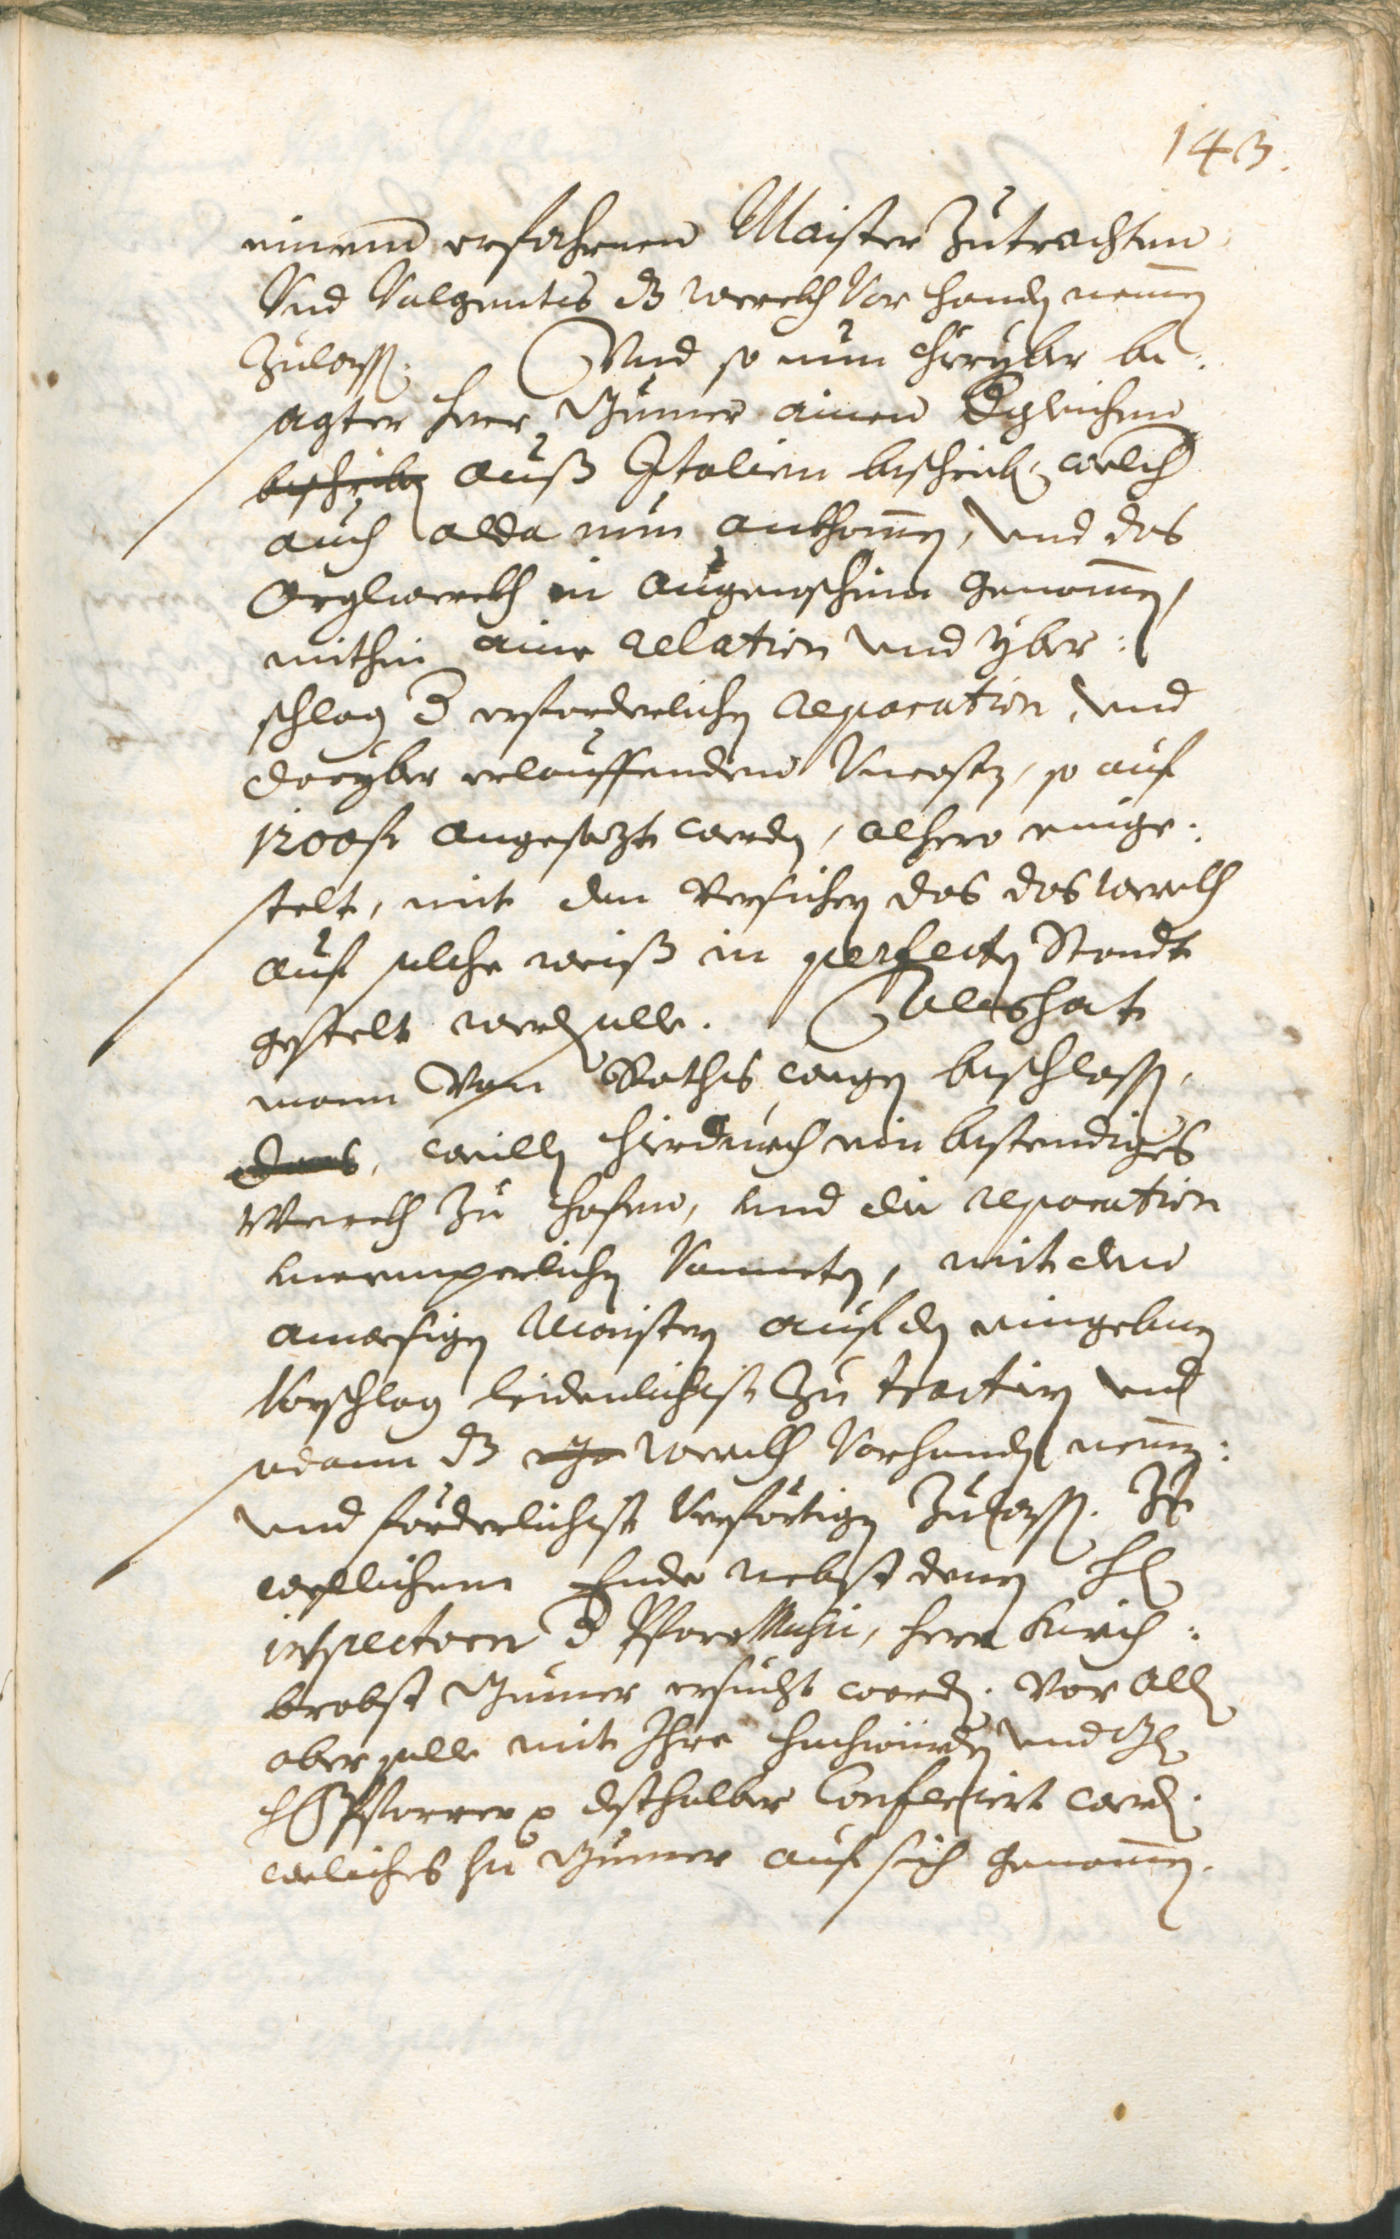 143.
einem erfahrnen Maister zutrachten
Und volgentes dz werckh vor handen nemmen
zulassen. Und so nun hieryber be:
sagter Herr Gumer ainen dergleichen
beschriben auß Italien beschriben, welcher
auch alda nun ankhommen, und das
Orglwerckh in augenschein genommen,
mithin aine relation und yber:
schlag der erforderlichen reparation, und
daryber erlauffenden Uncosten, so auf
1200 fl angesezt worden, alhero einge:
stelt, mit dem versichern das das werckh
auf solche weiß in perfecten Standt
gestelt werden solle. Alß hat
mann von Raths wegen beschlossen,
das, weillen hierdurch ein bestendiges
Werckh zu hofen, und die reparation
unentperlichen vonneten, mit dem
anwesigen Maistern auf den eingebnen
Vorschlag leidenlichist zu tractiern und
sodann dz werckh vorhanden nemmen:
und förderlichist verförtigen zulassen. Zu
wellichem Ende nebst denen HH
inspectorn der Pfarr Music, herr Kirch:
brobst Gumer ersucht worden. Vor allen
aber solle mit Ihro hochwürden und
H Pfarrer desthalber Conferiert werden.
weliches Hr Gumer auf sich genommen.